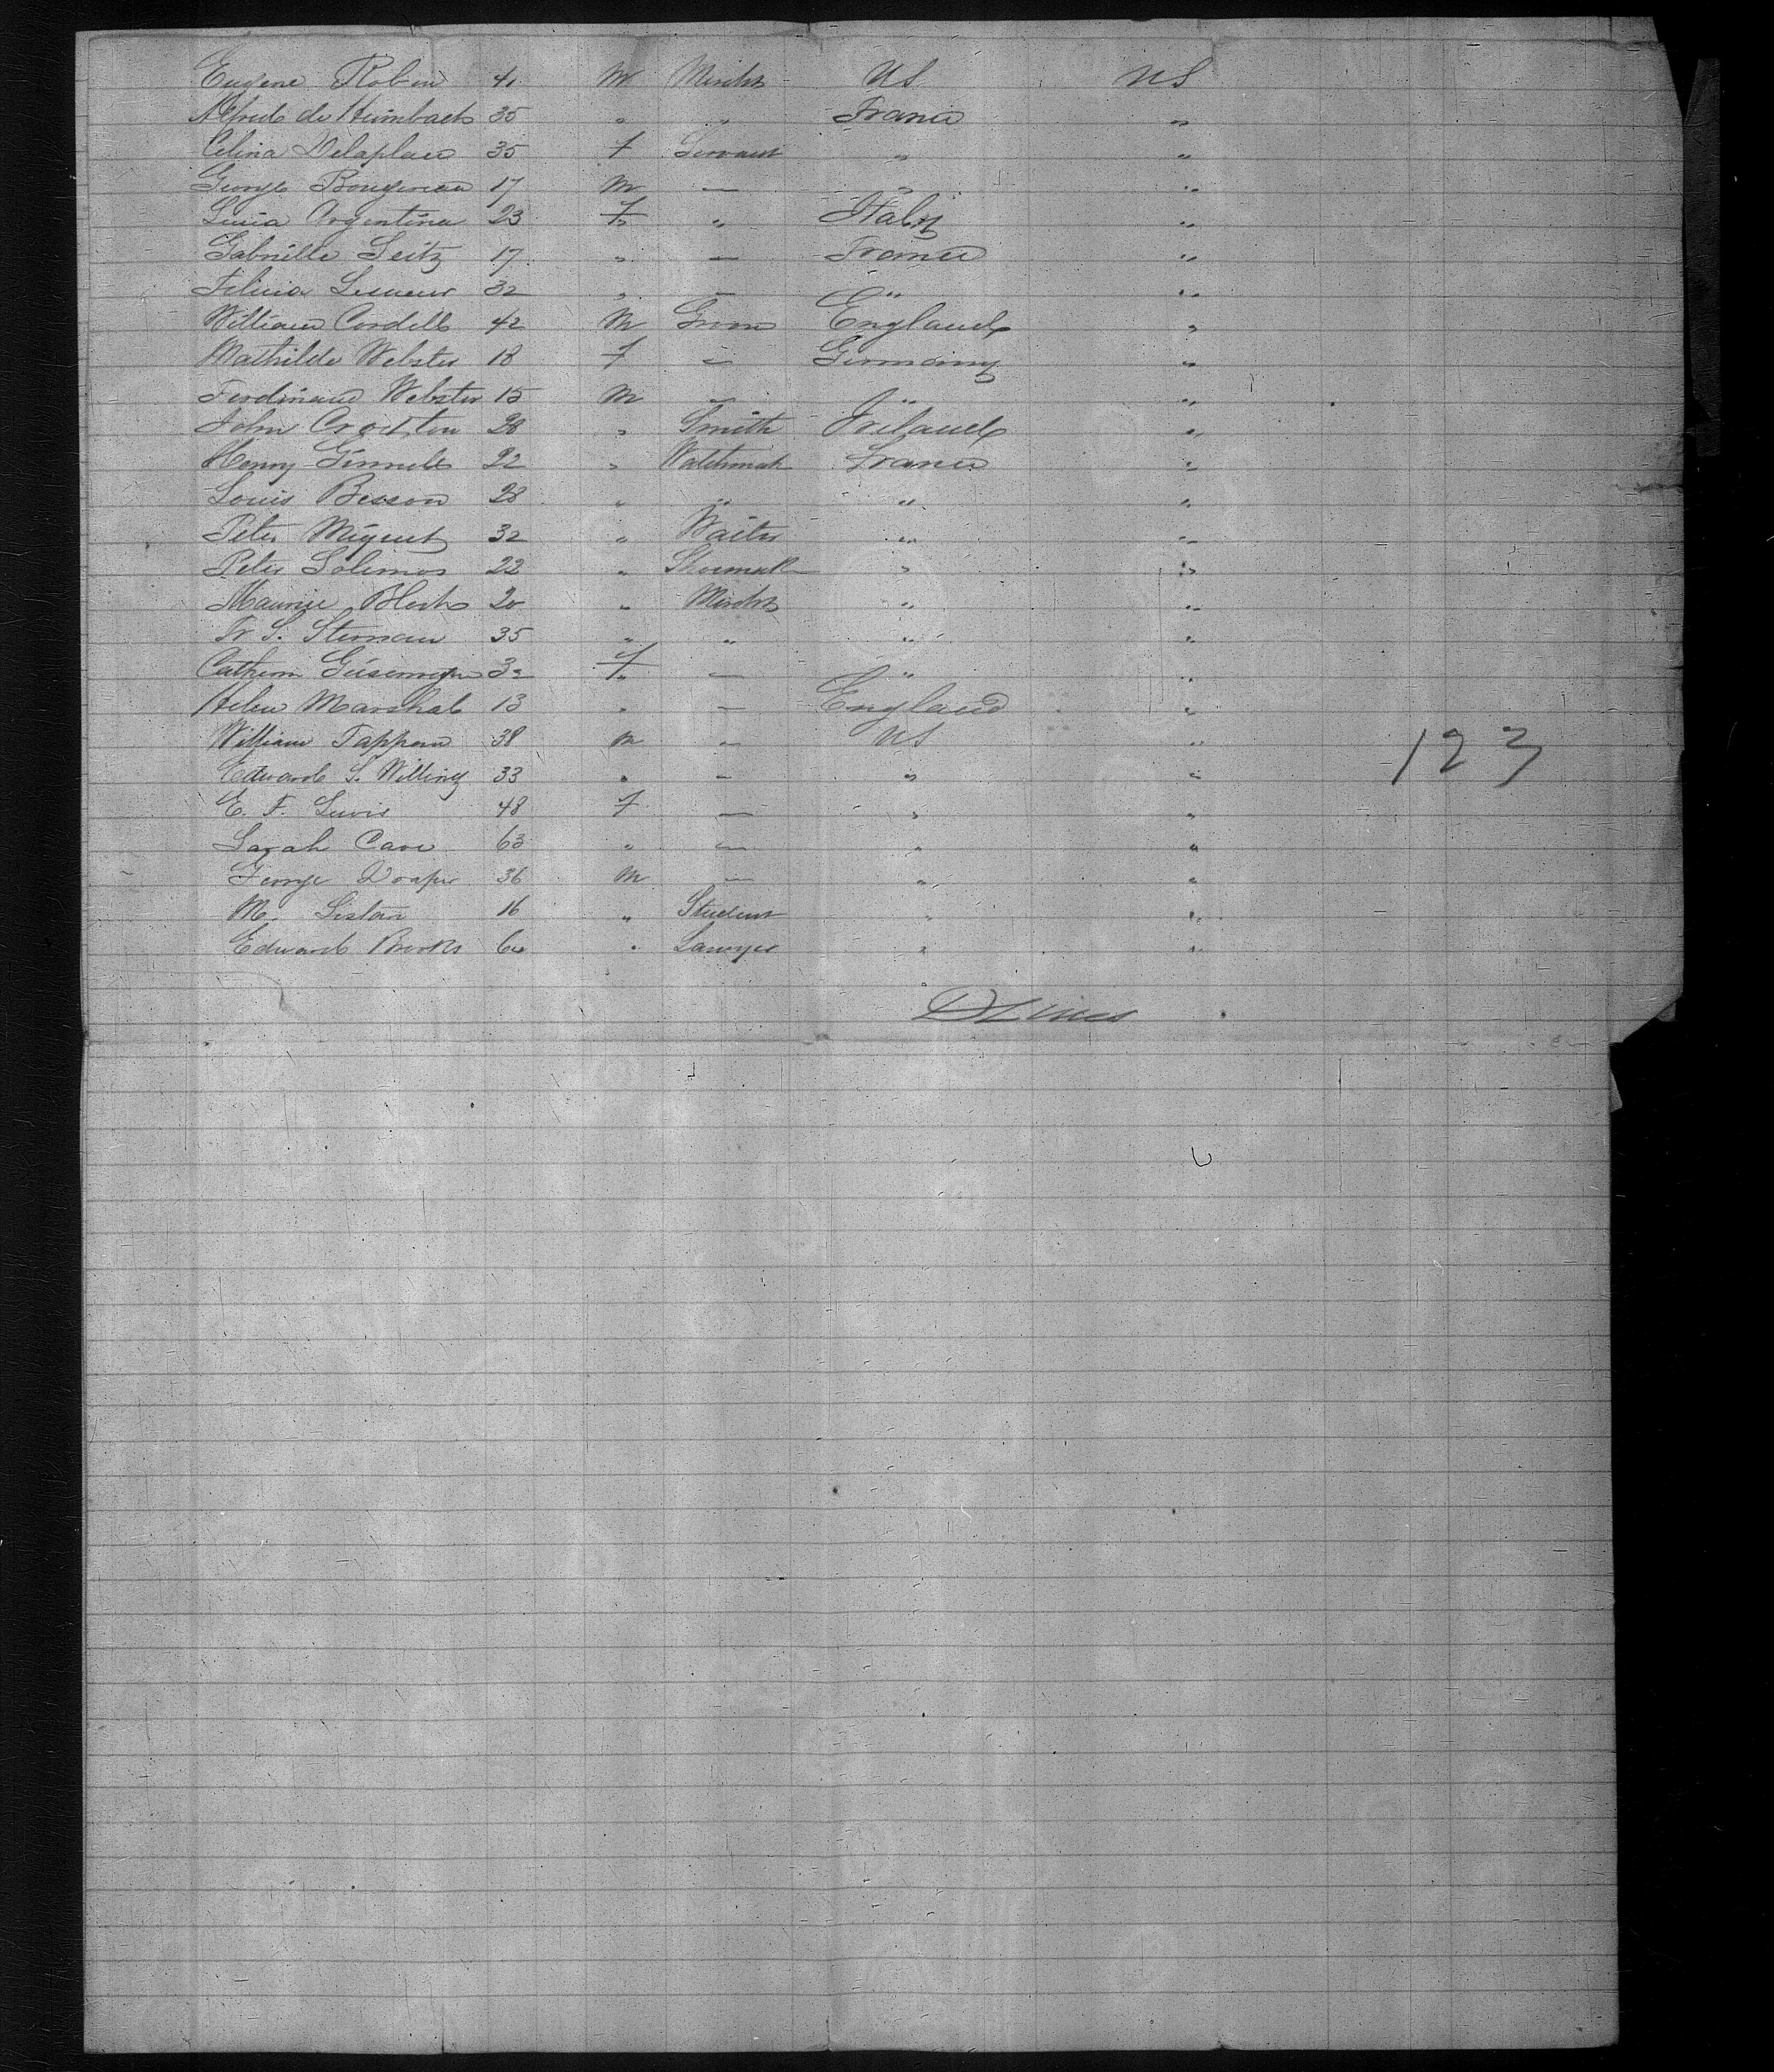 Eugene Robin 41 M Mercht US US
Alfred de Heimbach 35 " " France "
Celina Delaplace 35 F Servant " "
George 17 M — " "
Argentina 23 F " Italy "
Gabrielle Seitz 17 " — France "
Felicia Lesueur 32 " — " "
William Cordell 42 M Groom England "
Mathilde Webster 18 F — Germany "
Ferdinand Webster 15 M — " "
John 28 " Smith Ireland "
Henry 22 " Watchmak France "
Louis Besson 28 " " " "
Peter Miquet 32 " Waiter " "
Peter Solimos 22 " Shoemak " "
Maurice Bloch 20 " Mercht " "
Fr S. Sternau 35 " " " "
Cathern 32 F — " "
Helen Marshal 13 " — England "
William Tappan 38 M — US "
Edward S. Willing 33 " — " "
E. F. Lewis 48 F — " "
Sarah Care 63 " — " "
George Draper 36 M — " "
M. Listan 16 " Student " "
Edward Brooks 60 " Lawyer " "
123